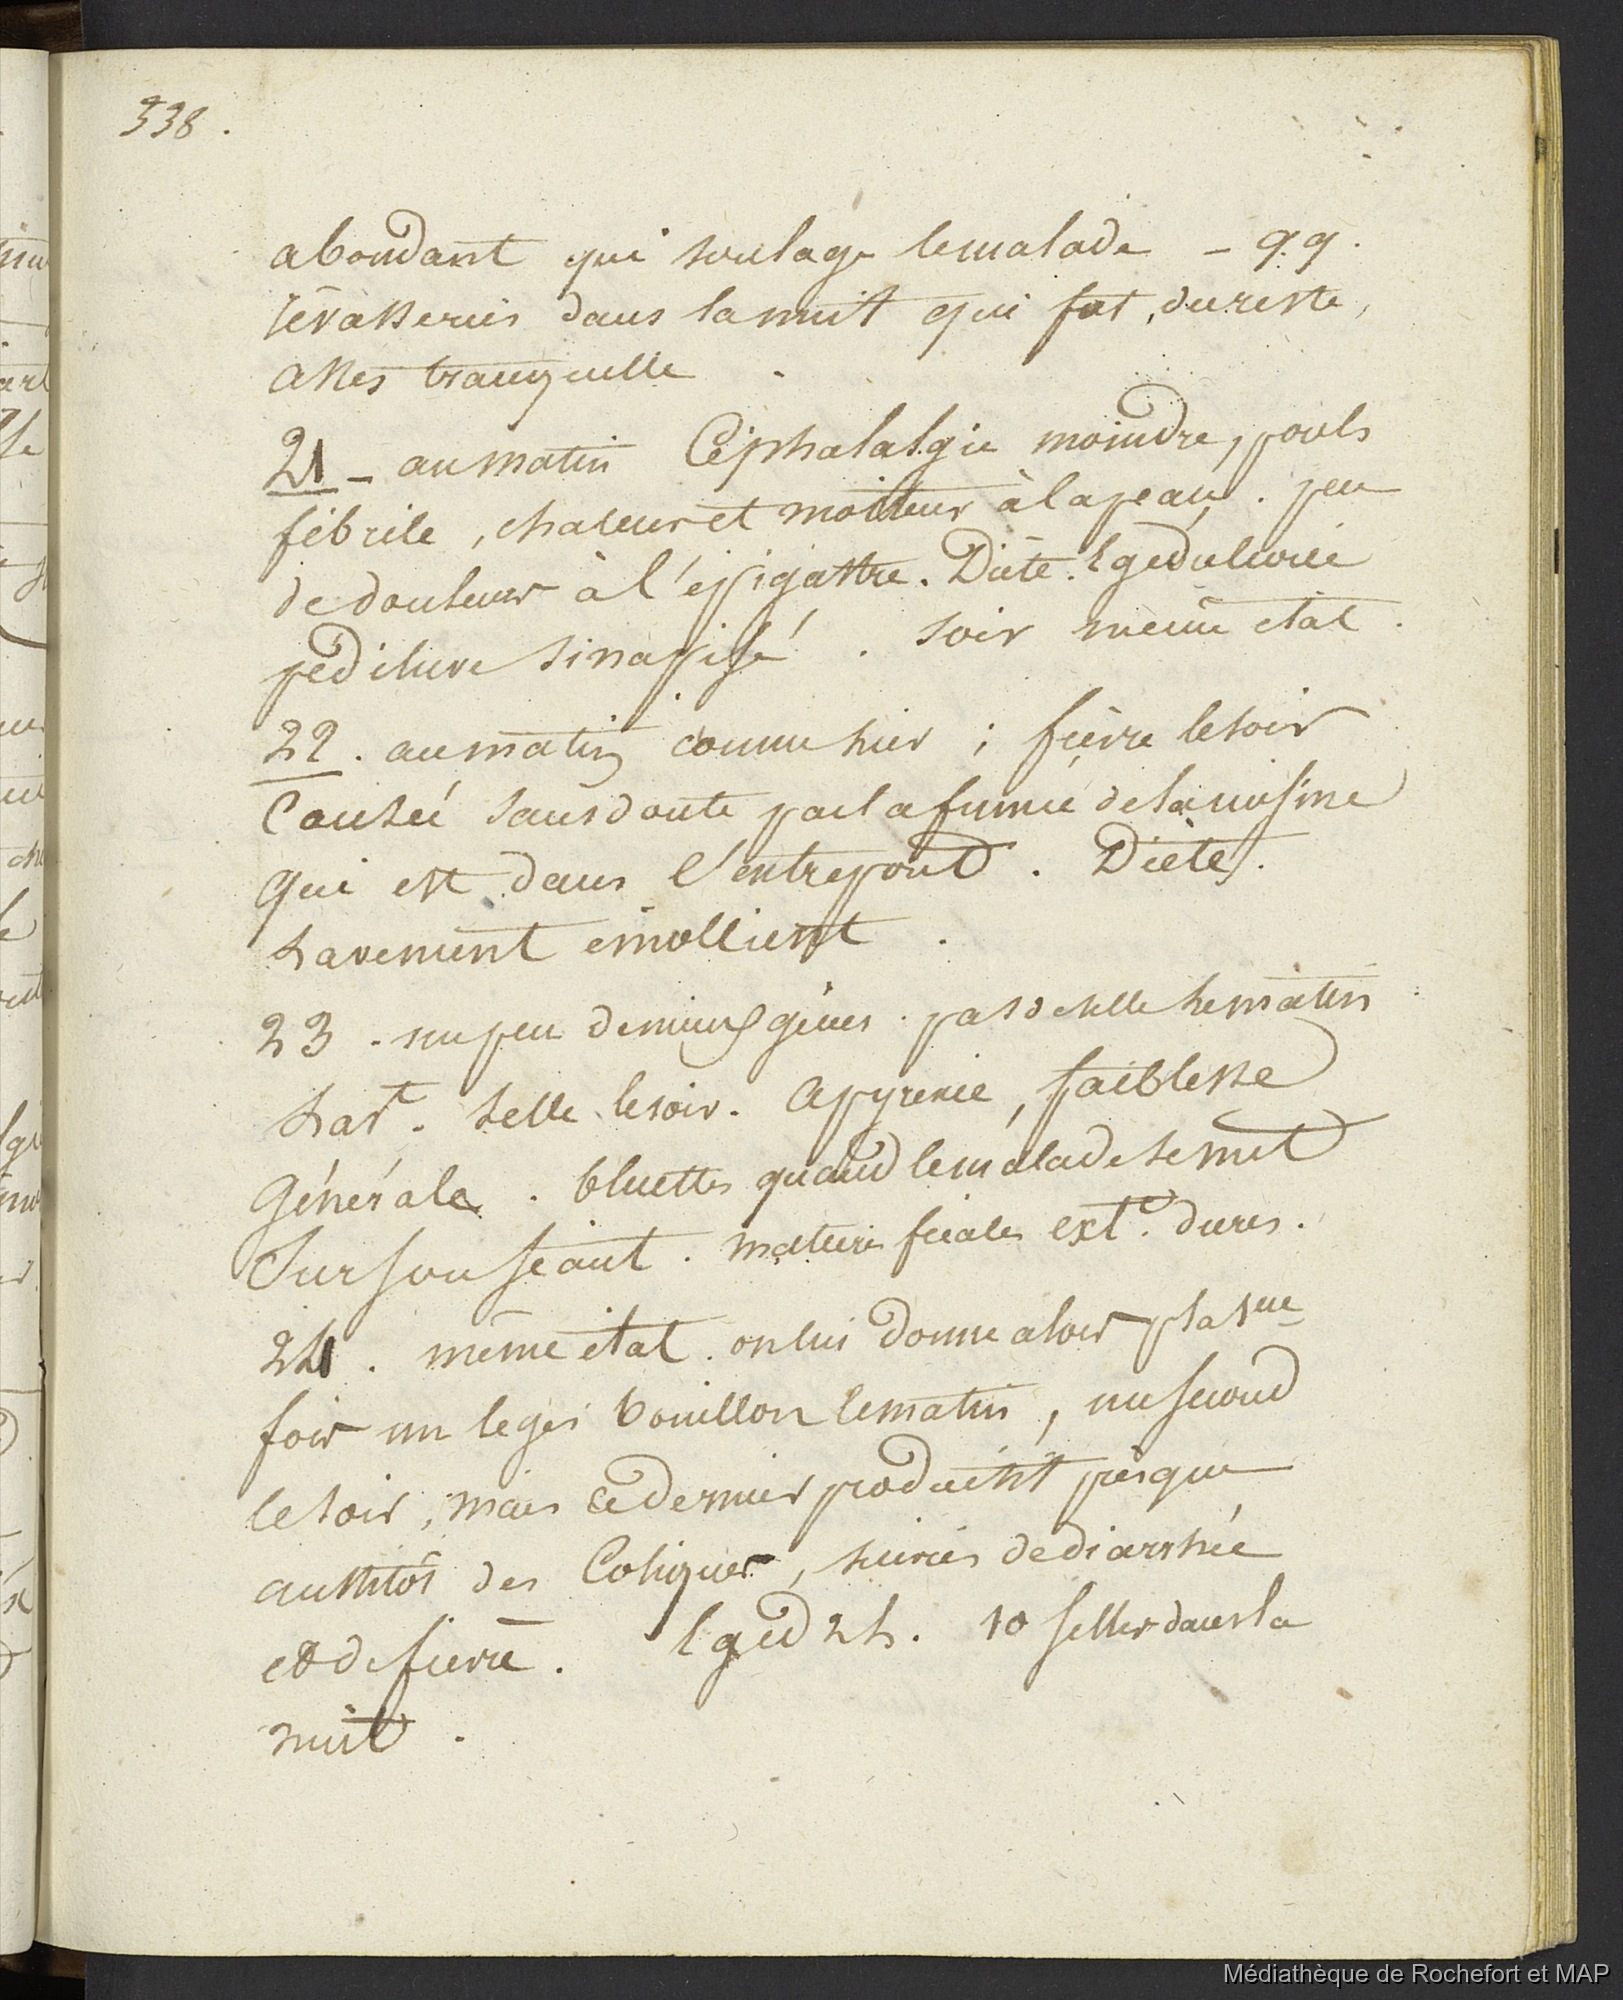 338.
abondant qui soulage le malade – qq.
rêvasseries dans la nuit qui fut, du reste,
assez tranquille.
21 – au matin Céphalalgie moindre, pouls
fébrile, chaleur et moiteur à la peau. peu
de douleur à l'épigastre. Diète.
pédiluve sinapisé. soir même état.
22. au matin comme hier; fièvre le soir
Causée sans doute par la fumée de la cuisine
qui est dans l'entrepont. Diète.
Lavement émollient.
23. un peu de mieux. pas de selle le matin
Lavt. selle le soir. Apyrexie, faiblesse
Générale. bluettes quand le malade se met
Sur son séant. matières fécales extt. dures.
24. même état. on lui donne alors p la 1ere
fois un leger bouillon le matin, un second
le soir, mais ce dernier produisit presque
aussitôt des Coliques, suivies de diarrhée
et de fièvre. 10 selles dans la
nuit.
Médiathèque de Rochefort et MAP